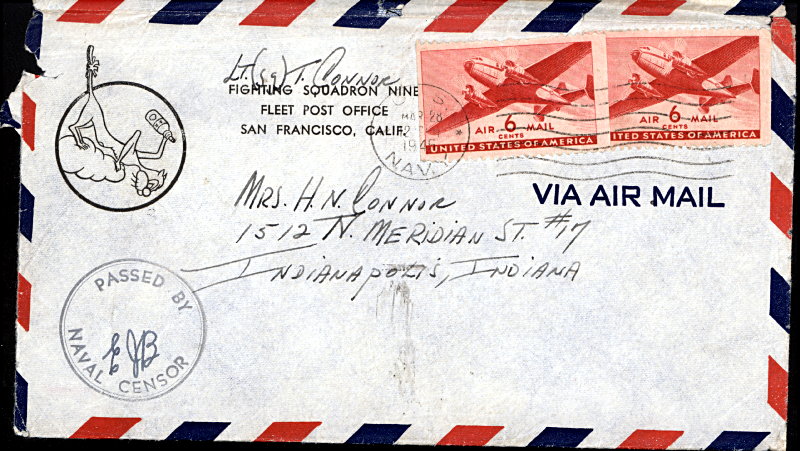 Lt. (sg) T. Connor
FIGHTING SQUADRON NINE
FLEET POST OFFICE
SAN FRANCISCO, CALIF.
U.S.
MAR 28
2
194
NAVY
AIR 6 MAIL
CENTS
UNITED STATES OF AMERICA
AIR 6 MAIL
CENTS
ITED STATES OF AMERICA
VIA AIR MAIL
Mrs. H. N. Connor
1512 N. Meridian St. #17
Indianapolis, Indiana
PASSED BY
EJB
NAVAL CENSOR